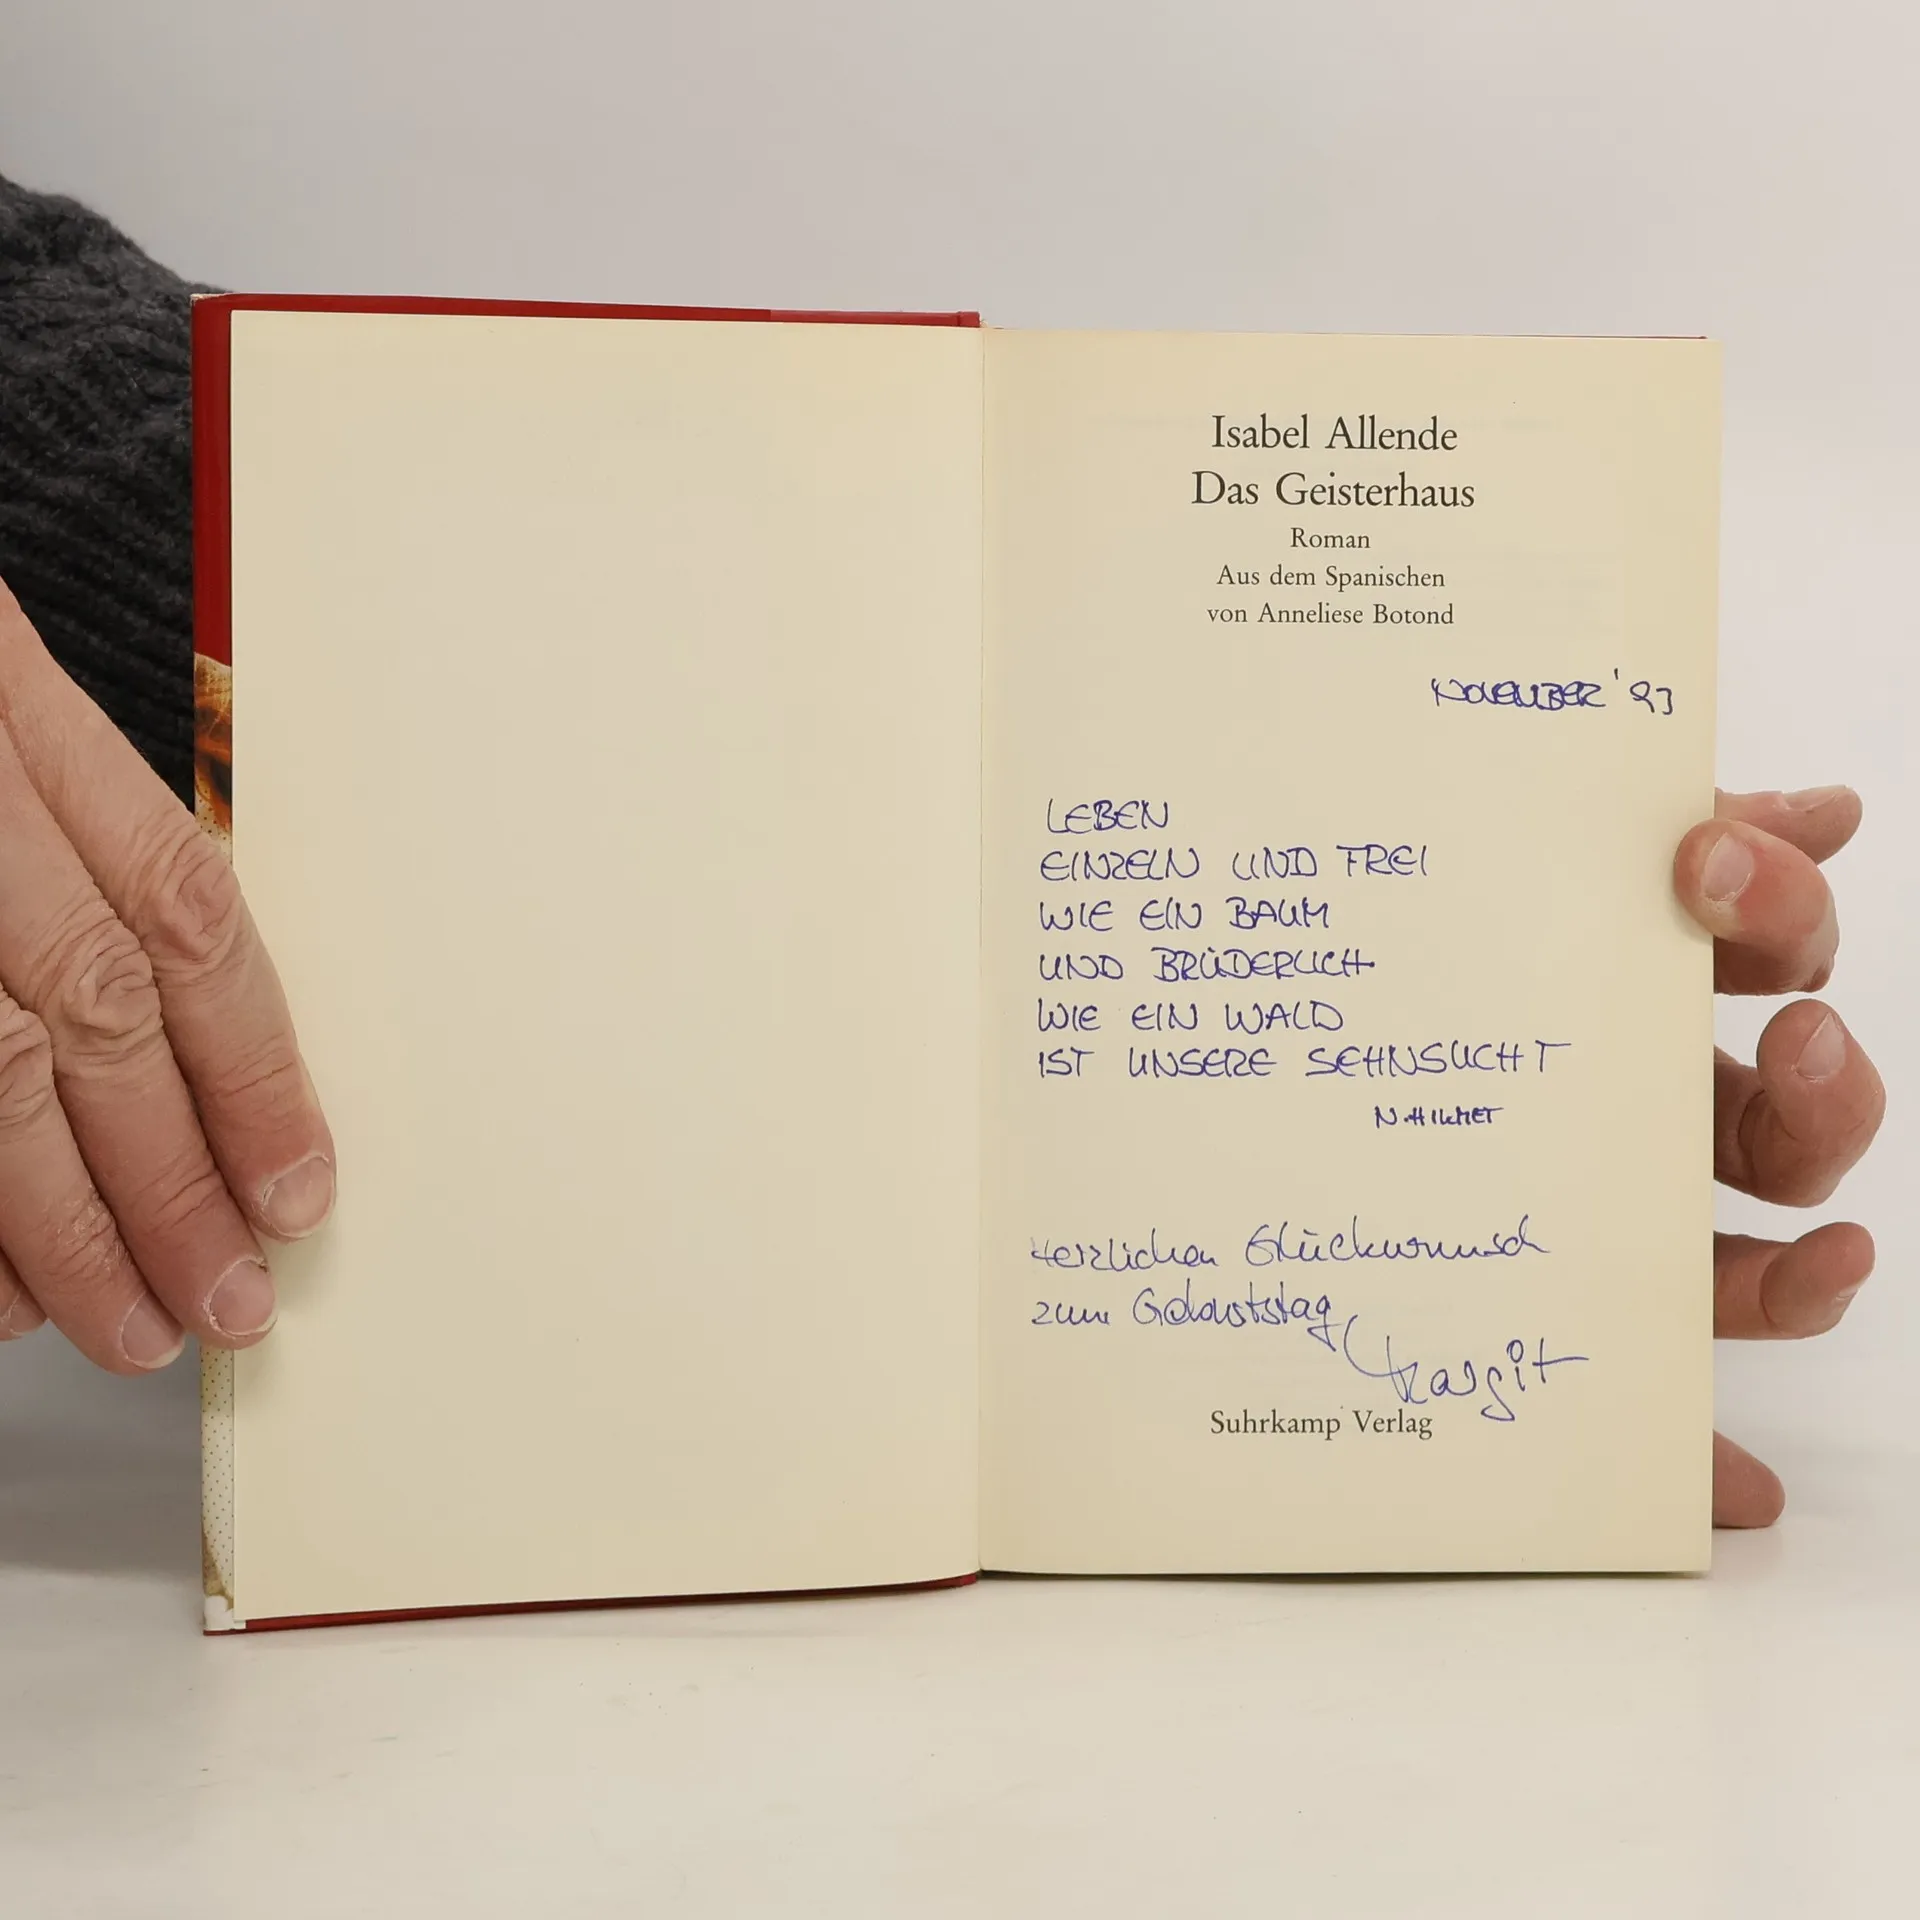 Isabel Allende
Das Geisterhaus
Roman
Aus dem Spanischen
von Anneliese Botond
NOVEMBER '93
LEBEN
EINZELN UND FREI
WIE EIN BAUM
UND BRÜDERLICH
WIE EIN WALD
IST UNSERE SEHNSUCHT
N. HIKMET
Herzlichen Glückwunsch
zum Geburtstag
Margit
Suhrkamp Verlag